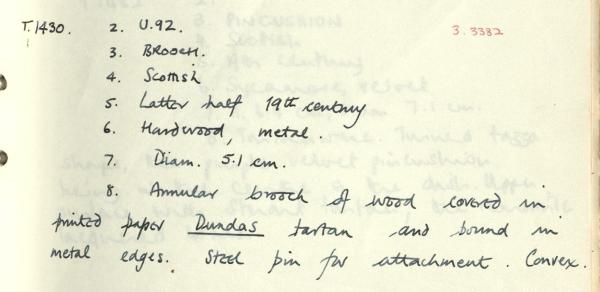 T.1430. 2. U.92. 3.3332
3. BROOCH.
4. Scottish
5. Latter half 19th century
6. Hardwood, metal.
7. Diam. 5.1 cm.
8. Annular brooch of wood covered in
printed paper Dundas tartan and bound in
metal edges. Steel pin for attachment. Convex.